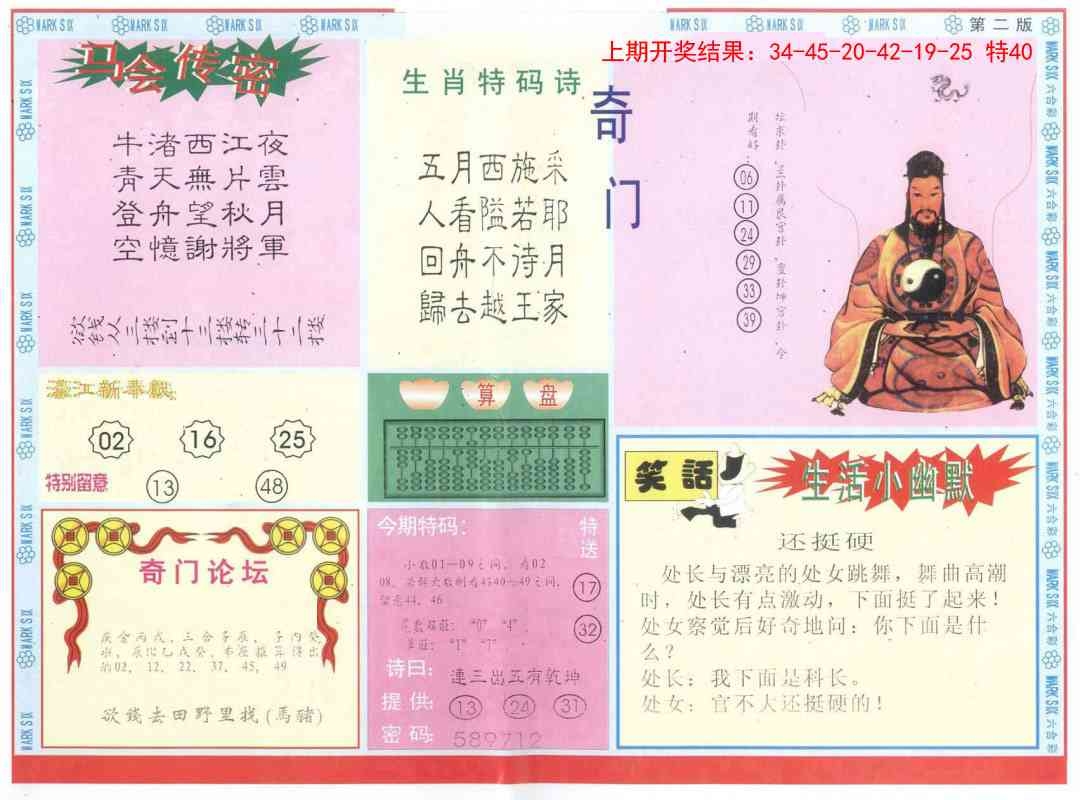 第二版
上期开奖结果：34-45-20-42-19-25 特40
马会传密
牛渚西江夜
青天無片雲
登舟望秋月
空憶謝將軍
欲钱从三楼到十三楼转三十二楼
生肖特码诗
五月西施采
人看隘若耶
回舟不待月
歸去越王家
奇门
06
11
24
29
33
39
02 16 25
特别留意
13 48
算盘
奇门论坛
的02，12，22，37，45，49
欲錢去田野里找(馬豬)
今期特码：
特送
小数01—09之间，看02
08，若群大数则看4540—49之间，
留意44、46
17
32
诗曰：連三出五有乾坤
提供：13 24 31
密码：589712
笑話
生活小幽默
还挺硬
处长与漂亮的处女跳舞，舞曲高潮
时，处长有点激动，下面挺了起来！
处女察觉后好奇地问：你下面是什
么？
处长：我下面是科长。
处女：官不大还挺硬的！
MARK SIX 六合彩